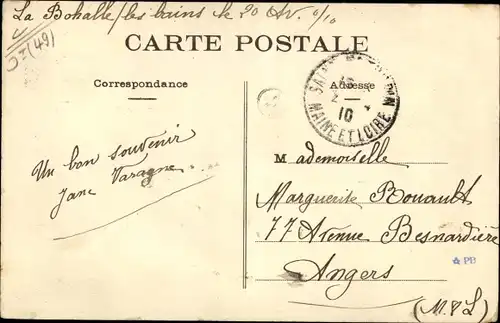 La Bohalle/les bains le 20 Av. 0/10
(49)
CARTE POSTALE
Correspondance
Adresse
MAINE ET LOIRE
10
Un bon souvenir
Jane Varagne
Mademoiselle
Marguerite Bouault
77 Avenue Besnardière
Angers
(M & L)
PB